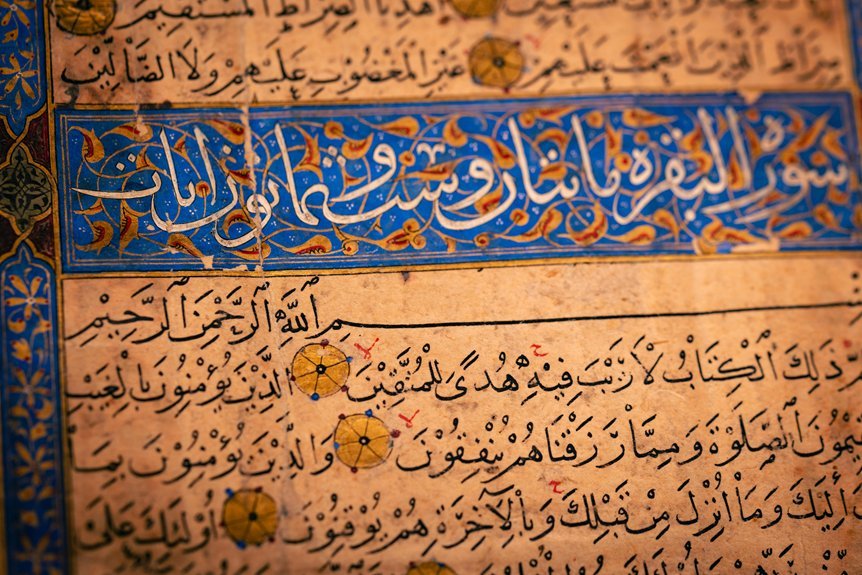 اهْدِنَا الصِّرَاطَ الْمُسْتَقِيمَ
صِرَاطَ الَّذِينَ أَنْعَمْتَ عَلَيْهِمْ غَيْرِ الْمَغْضُوبِ عَلَيْهِمْ وَلَا الضَّالِّينَ
سورة البقرة مايتان وست وثمانون ايات
بِسْمِ اللَّهِ الرَّحْمَنِ الرَّحِيمِ
ذَلِكَ الْكِتَابُ لَا رَيْبَ فِيهِ هُدًى لِلْمُتَّقِينَ الَّذِينَ يُؤْمِنُونَ بِالْغَيْبِ
الصَّلَوةَ وَمِمَّا رَزَقْنَاهُمْ يُنْفِقُونَ وَالَّذِينَ يُؤْمِنُونَ بِمَا
إِلَيْكَ وَمَا أُنْزِلَ مِنْ قَبْلِكَ وَبِالْآخِرَةِ هُمْ يُوقِنُونَ أُولَئِكَ عَلَى